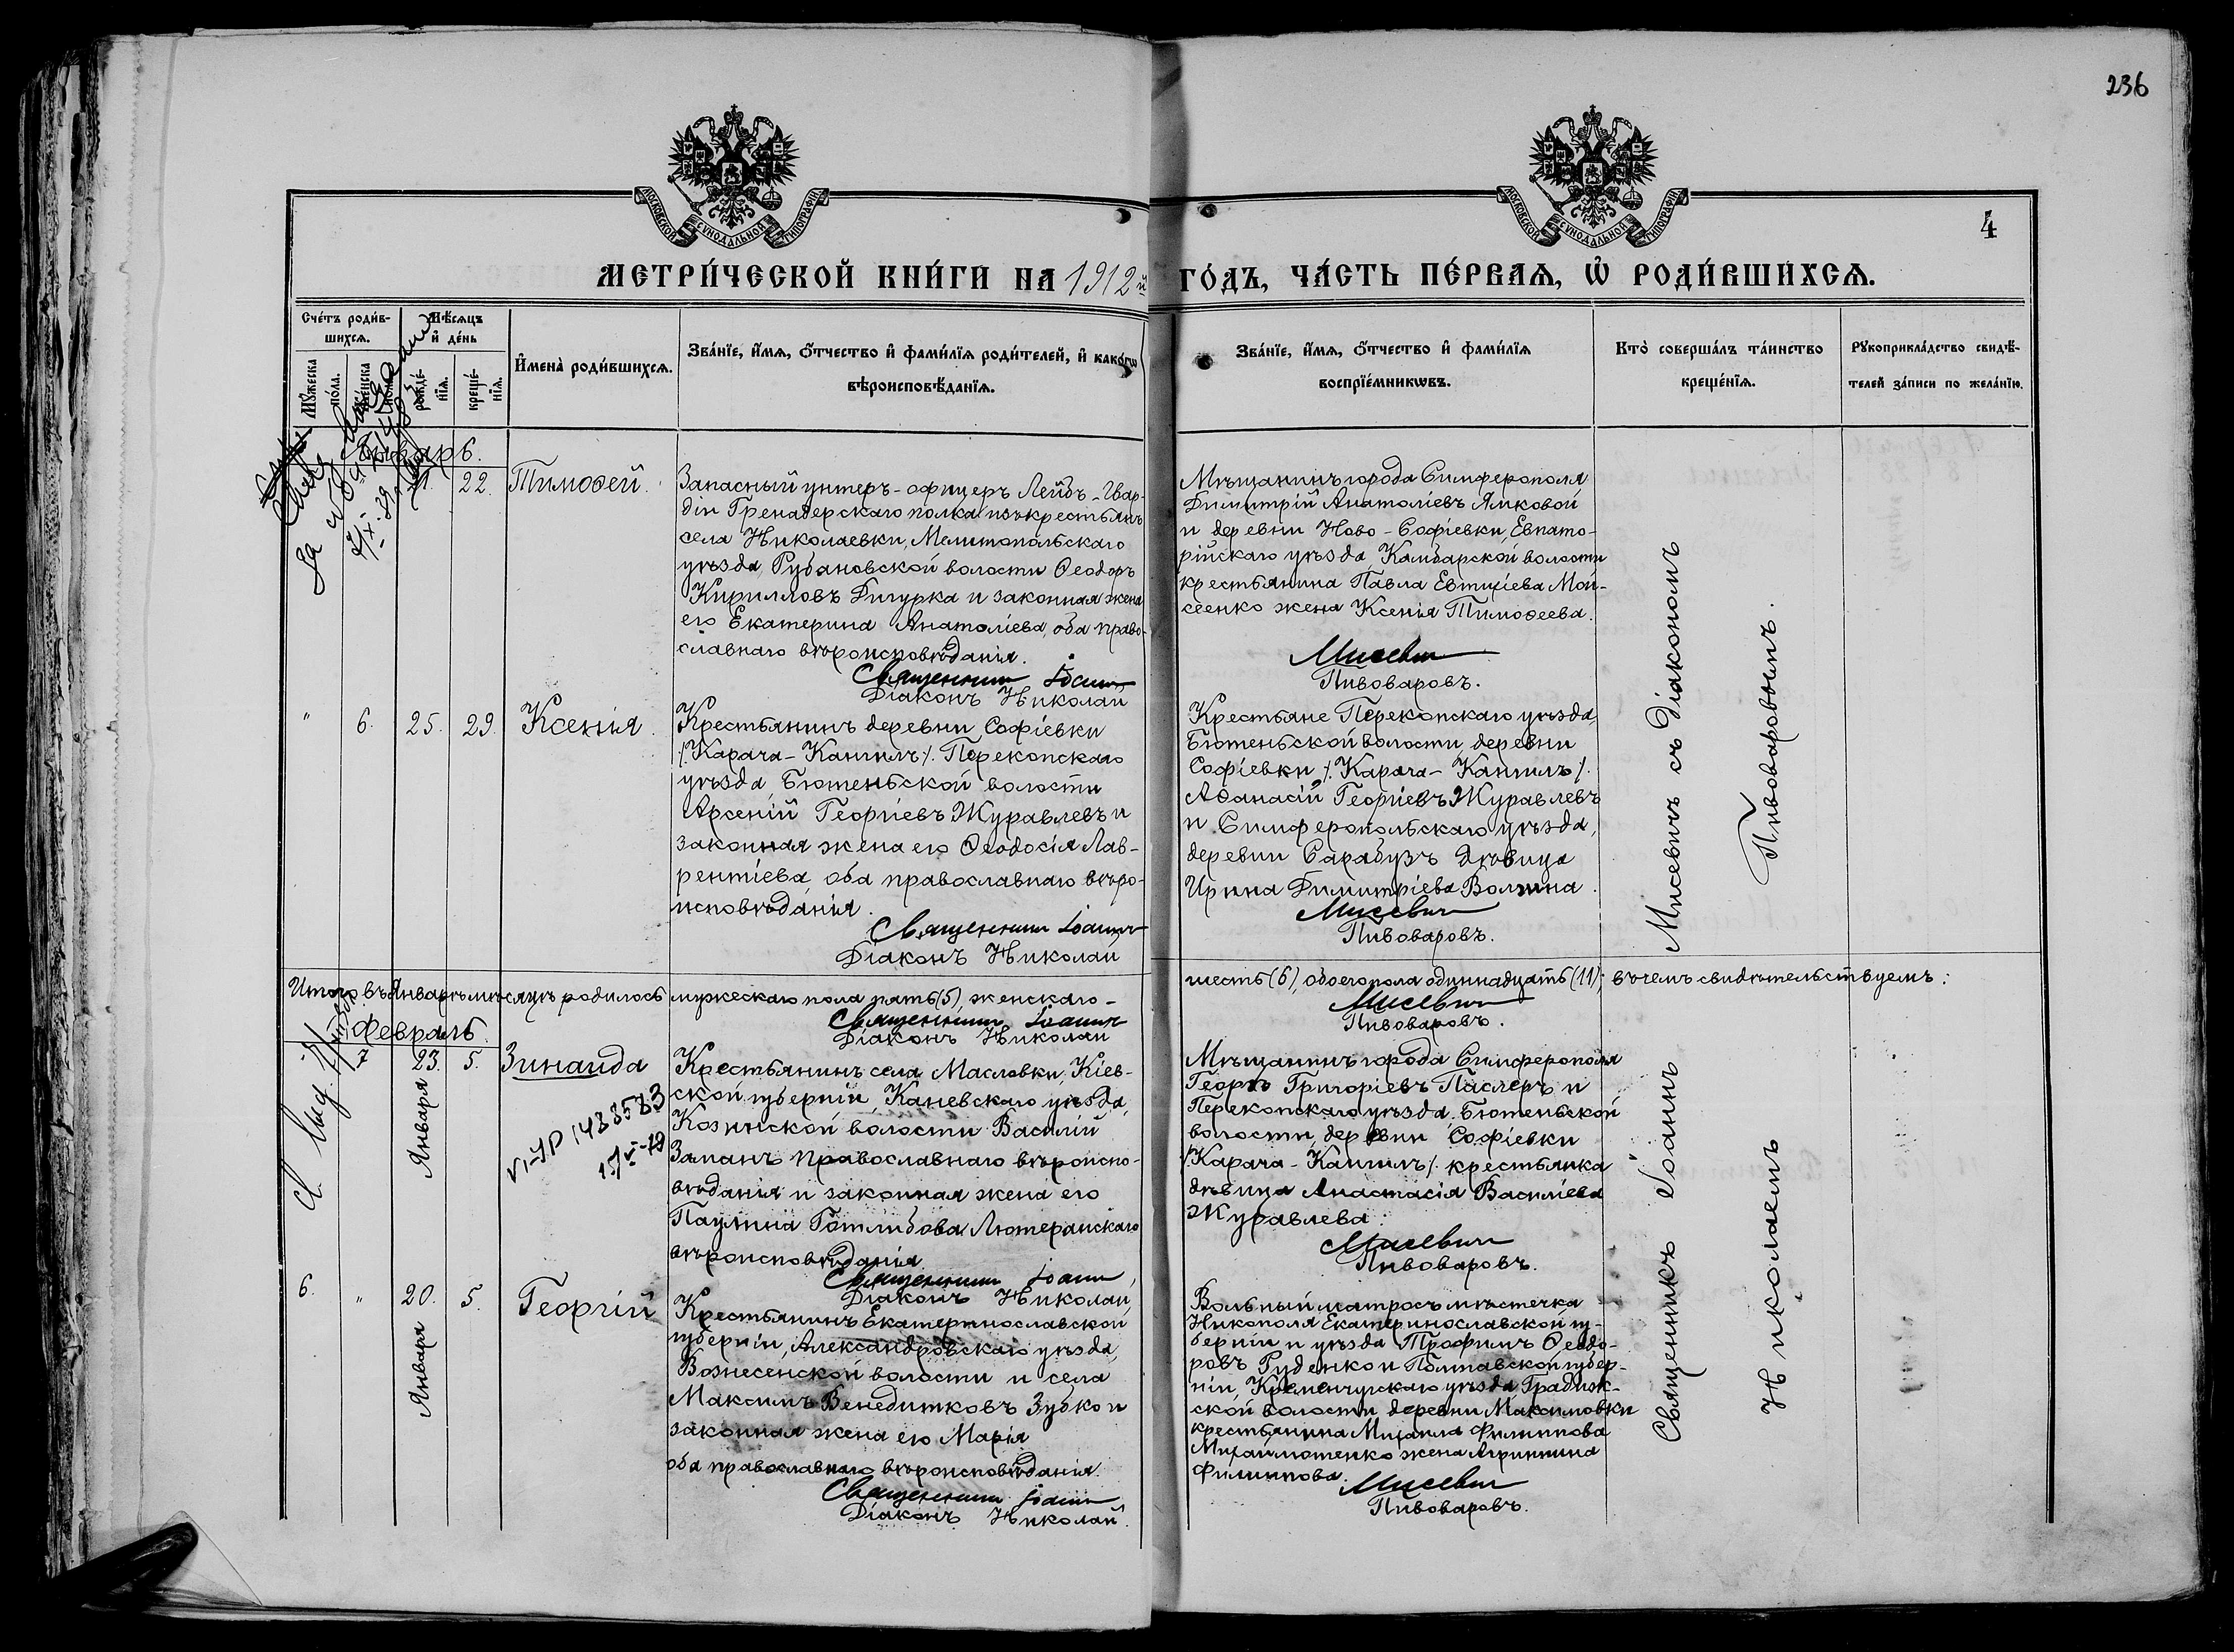 236
МОСКОВСКОЙ СѴНОДАЛЬНОЙ ТИПОГРАФІИ
МОСКОВСКОЙ СѴНОДАЛЬНОЙ ТИПОГРАФІИ
4
МЕТРИ́ЧЕСКОЙ КНИ́ГИ НА 1912й ГО́ДЪ, ЧА́СТЬ ПЕ́РВАѦ, Ѡ҆ РОДИ́ВШИХСѦ.
Сче́тъ роди́в-
шихсѧ.
Мѣ́сѧцъ
и҆ де́нь
Мꙋ́жеска
по́ла.
Же́нска
рожде́-
нїѧ.
креще́-
нїѧ.
И҆мена̀ роди́вшихсѧ.
Зва́нїе, и҆́мѧ, ѻ҆́тчество и҆ фами́лїѧ роди́телей, и҆ како́гѡ
вѣроисповѣ́данїѧ.
Зва́нїе, и҆́мѧ, ѻ҆́тчество и҆ фами́лїѧ
воспрїе́мникѡвъ.
Кто̀ соверша́лъ та́инство
креще́нїѧ.
Рꙋкоприкла́дство свидѣ́-
телей за́писи по жела́нїю.
Январь.
22.
Тимоѳей.
Запасный унтеръ-офицеръ Лейбъ-Гвар-
діи Гренадерскаго полка изъ крестьянъ
села Николаевки, Мелитопольскаго
уѣзда, Рубановской волости Ѳеодоръ
Кирилловъ Дигурка и законная жена
его Екатерина Анатоліева, оба право-
славнаго вѣроисповѣданія.
Священникъ Іоаннъ
Діаконъ Николай
Мѣщанинъ города Симферополя
Димитрій Анатоліевъ Ямковой
и деревни Ново-Софіевки, Евпато-
рійскаго уѣзда, Камбарской волости
крестьянина Павла Евтихіева Мои-
сеенко жена Ксенія Тимоѳеева.
Мисевичъ
Пивоваровъ.
" 6. 25. 29. Ксенія.
Крестьянинъ деревни Софіевки
/Карача-Кангилъ/. Перекопскаго
уѣзда, Бютеньской волости
Арсеній Георгіевъ Журавлевъ и
законная жена его Ѳеодосія Лав-
рентіева, оба православнаго вѣро-
исповѣданія.
Священникъ Іоаннъ
Діаконъ Николай
Крестьяне Перекопскаго уѣзда,
Бютеньской волости, деревни
Софіевки /. Карача-Кангилъ/.
Аѳанасій Георгіевъ Журавлевъ
и Симферопольскаго уѣзда,
деревни Сарабузъ дѣвица
Ирина Димитріева Волгина.
Мисевичъ
Пивоваровъ.
Мисевичъ съ Діакономъ
Пивоваровымъ.
Итого въ Январѣ мѣсяцѣ родилось мужескаго пола пять (5), женскаго -
шесть (6), обоего пола одиннадцать (11); въ чемъ свидѣтельствуемъ:
Священникъ Іоаннъ
Діаконъ Николай
Мисевичъ
Пивоваровъ.
Февраль.
7 23. Января 5. Зинаида
1488583
Крестьянинъ села Масловки, Кіев-
ской губерніи, Каневскаго уѣзда,
Козинской волости Василій
Заманъ православнаго вѣроиспо-
вѣданія и законная жена его
Паулина Готлибова Лютеранскаго
вѣроисповѣданія.
Священникъ Іоаннъ
Діаконъ Николай
Мѣщанинъ города Симферополя
Георгъ Григоріевъ Паслеръ и
Перекопскаго уѣзда, Бютеньской
волости, деревни Софіевки
/Карача-Кангилъ/. крестьянка
дѣвица Анастасія Василіева
Журавлева.
Мисевичъ
Пивоваровъ.
6. " 20. Января 5. Георгій
Крестьянинъ Екатеринославской
губерніи, Александровскаго уѣзда,
Вознесенской волости и села
Максимъ Бенедитковъ Зубко и
законная жена его Марія
оба православнаго вѣроисповѣданія.
Священникъ Іоаннъ
Діаконъ Николай.
Вольный матросъ мѣстечка
Никополя Екатеринославской гу-
берніи и уѣзда Трофимъ Ѳеодо-
ровъ Руденко и Полтавской губер-
ніи, Кременчугскаго уѣзда, Градиж-
ской волости деревни Максимовки
крестьянина Михаила Филиппова
Михайлютенко жена Агриппина
Филиппова.
Мисевичъ
Пивоваровъ.
Священникъ Іоаннъ
Николаемъ